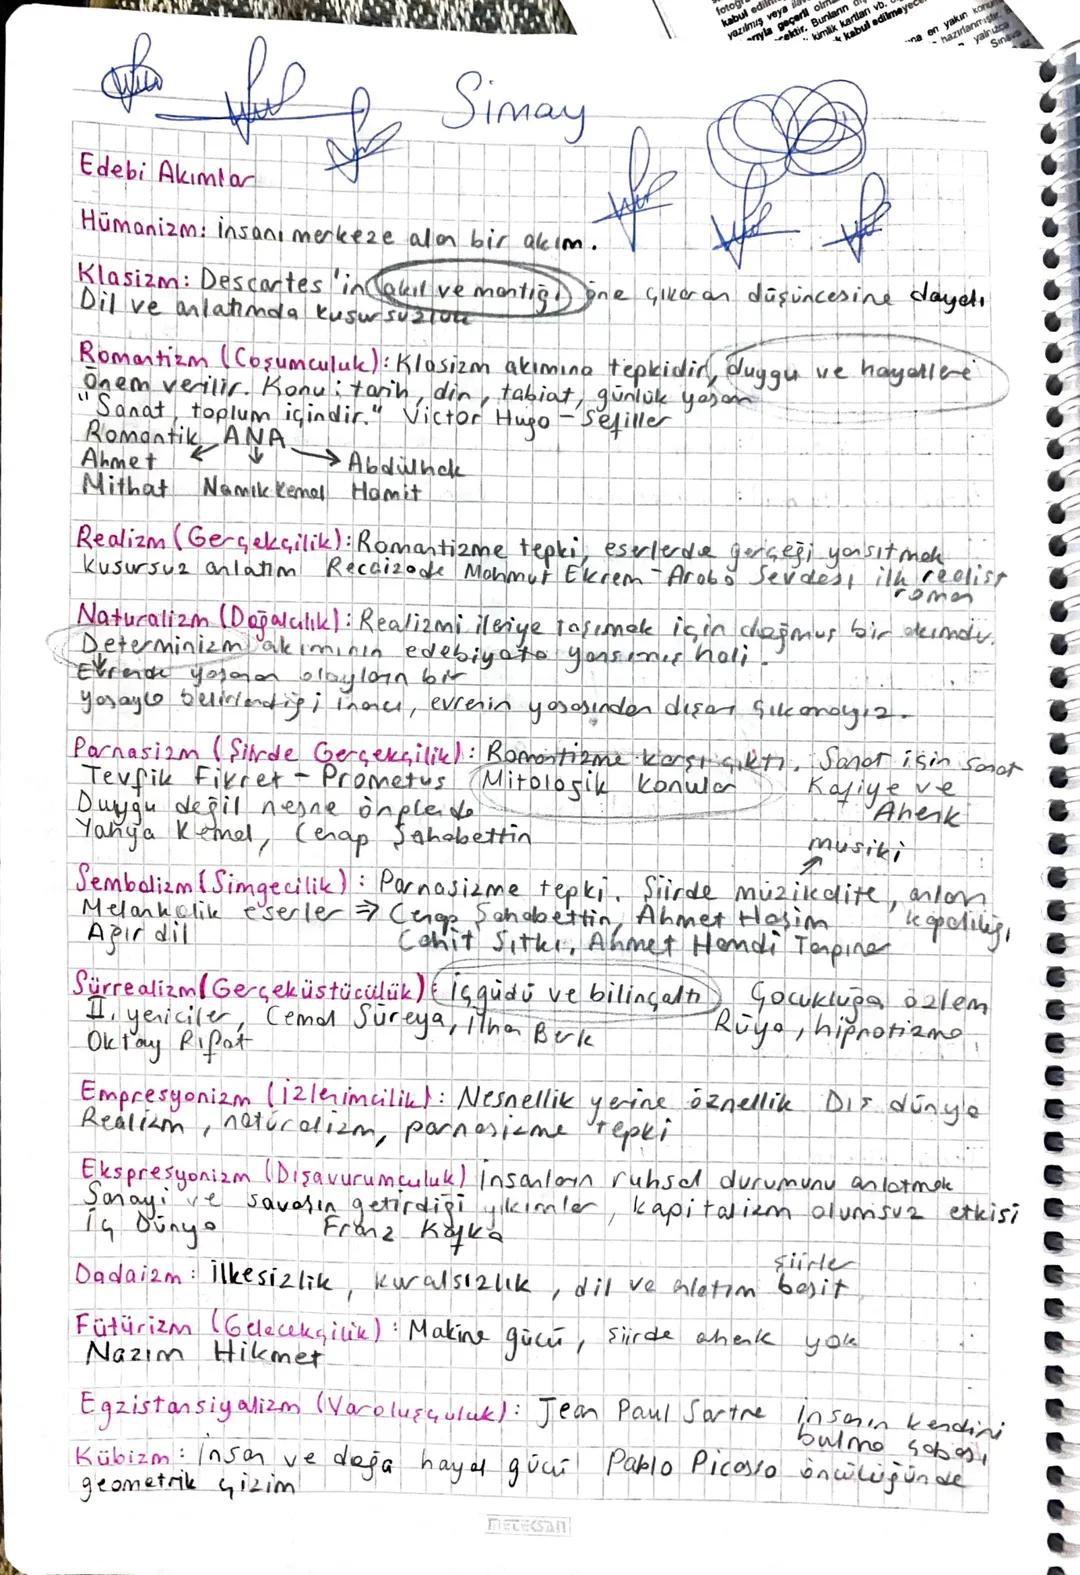 fotoğ
kabul edilm
yazılmış veya
geçerli olma
Bunların
kimlik kartları vb.
kabul edilmeyece
en yakın konu
hazırlanmıştır.
yalnızca
Sınava
Simay
Edebi Akımlar
Hümanizm: insanı merkeze alan bir akım.
Klasizm: Descartes'in akıl ve mantığı öne çıkaran düşüncesine dayalı
Dil ve anlatımda kusursuzluk
Romantizm (Coşumculuk): Klasizm akımına tepkidir, duygu ve hayallere
önem verilir. Konu: tarih, din, tabiat, günlük yaşam
"Sanat, toplum içindir." Victor Hugo - Sefiller
Romantik ANA
Ahmet → Abdülhak
Mithat Namık Kemal Hamit
Realizm (Gerçekçilik): Romantizme tepki, eserlerde gerçeği yansıtmak
kusursuz anlatım Recaizade Mahmut Ekrem - Araba Sevdası ilk realist
roman
Naturalizm (Doğalcılık): Realizmi ileriye taşımak için doğmuş bir akımdır.
Determinizm akımının edebiyata yansımış hali.
Evrende yaşanan olayların bir
yasayla belirlendiği inancı, evrenin yasasından dışarı çıkamayız.
Parnasizm (Şiirde Gerçekçilik): Romantizme karşı çıktı. Sanat için sanat
Tevfik Fikret - Prometus Mitolojik konular Kafiye ve
Duygu değil nesne önplanda Ahenk
Yahya Kemal, Cenap Şahabettin
musiki
Sembolizm (Simgecilik): Parnasizme tepki. Şiirde müzikalite, anlam
Melankolik eserler ⇒ Cenap Şahabettin, Ahmet Haşim kapalılığı
Ağır dil Cahit Sıtkı, Ahmet Hamdi Tanpınar
Sürrealizm (Gerçeküstücülük): içgüdü ve bilinçaltı Çocukluğa özlem
II. yeniciler, Cemal Süreya, İlhan Berk Rüya, hipnotizma
Oktay Rıfat
Empresyonizm (izlenimcilik): Nesnellik yerine öznellik Dış dünya
Realizm, natüralizm, parnasizme tepki
Ekspresyonizm (Dışavurumculuk) insanların ruhsal durumunu anlatmak
Sanayi ve savaşın getirdiği yıkımlar, kapitalizm olumsuz etkisi
iç Dünya Franz Kafka
şiirler
Dadaizm: ilkesizlik, kuralsızlık, dil ve anlatım basit
Fütürizm (Gelecekçilik): Makine gücü, şiirde ahenk yok
Nazım Hikmet
Egzistansiyalizm (Varoluşçuluk): Jean Paul Sartre insanın kendini
bulma çabası
Kübizm: insan ve doğa hayal gücü Pablo Picasso öncülüğünde
geometrik çizim
METEKSAN